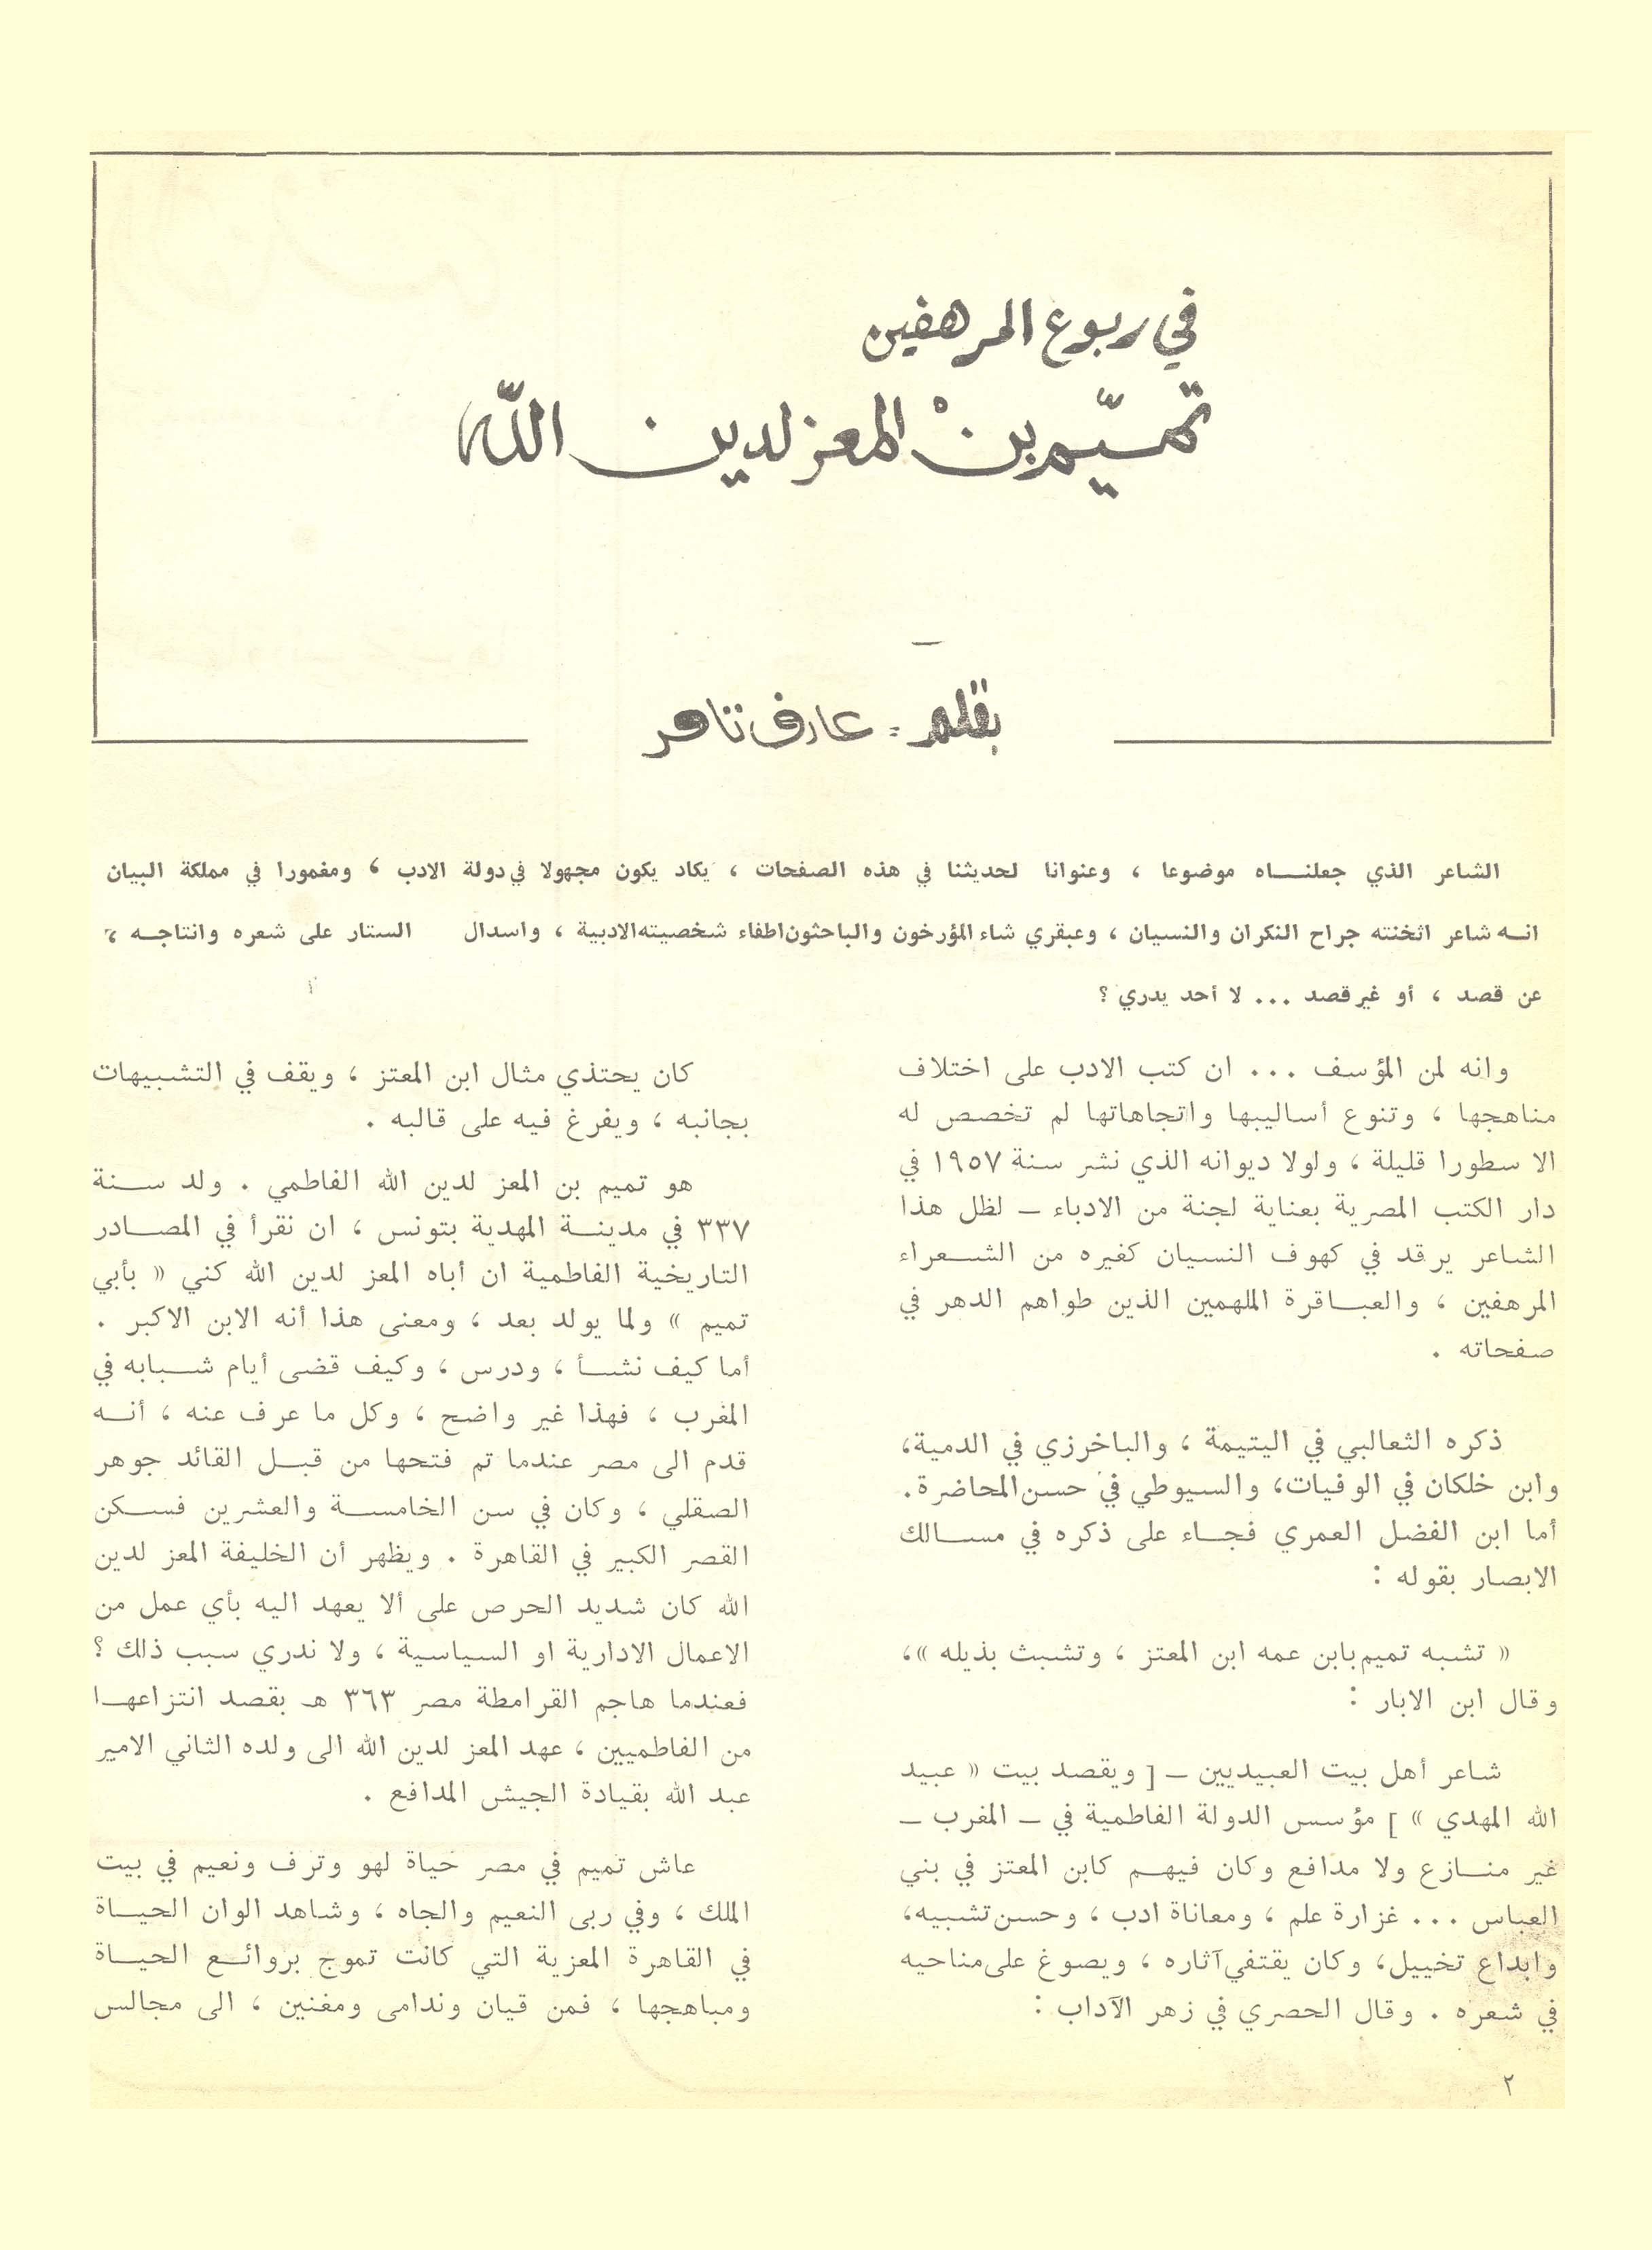 في ربوع المرهفين
تميّم بنْ المعز لدين اللّه
بقلم : عارف تامر
الشاعر الذي جعلنـــاه موضوعا ، وعنوانا لحديثنا في هذه الصفحات ، يكاد يكون مجهولا في دولة الادب ، ومغمورا في مملكة البيان
انـه شاعر اثخنته جراح النكران والنسيان ، وعبقري شاء المؤرخون والباحثون اطفاء شخصيته الادبية ، واسدال الستار على شعره وانتاجـه ،
عن قصد ، أو غير قصد ... لا أحد يدري ؟
وانه لمن المؤسف ... ان كتب الادب على اختلاف
مناهجها ، وتنوع أساليبها واتجاهاتها لم تخصص له
الا سطورا قليلة ، ولولا ديوانه الذي نشر سنة ١٩٥٧ في
دار الكتب المصرية بعناية لجنة من الادباء ـ لظل هذا
الشاعر يرقد في كهوف النسيان كغيره من الشـعراء
المرهفين ، والعبـاقرة الملهمين الذين طواهم الدهر في
صفحاته .
ذكره الثعالبي في اليتيمة ، والباخرزي في الدمية،
وابن خلكان في الوفيات، والسيوطي في حسن المحاضرة.
أما ابن الفضل العمري فجـاء على ذكره في مسـالك
الابصار بقوله :
« تشبه تميم بابن عمه ابن المعتز ، وتشبث بذيله »،
وقال ابن الابار :
شاعر أهل بيت العبيديين ـ [ ويقصد بيت « عبيد
الله المهدي » ] مؤسس الدولة الفاطمية في ـ المغرب ـ
غير منـازع ولا مدافع وكان فيهـم كابن المعتز في بني
العباس ... غزارة علم ، ومعاناة ادب ، وحسن تشبيه،
وابداع تخييل، وكان يقتفي آثاره ، ويصوغ على مناحيه
في شعره . وقال الحصري في زهر الآداب :
كان يحتذي مثال ابن المعتز ، ويقف في التشبيهات
بجانبه ، ويفرغ فيه على قالبه .
هو تميم بن المعز لدين الله الفاطمي . ولد سـنة
٣٣٧ في مدينـة المهدية بتونس ، ان نقرأ في المصـادر
التاريخية الفاطمية ان أباه المعز لدين الله كني « بأبي
تميم » ولما يولد بعد ، ومعنى هذا أنه الابن الاكبر .
أما كيف نشـأ ، ودرس ، وكيف قضى أيام شـبابه في
المغرب ، فهذا غير واضح ، وكل ما عرف عنه ، أنـه
قدم الى مصر عندما تم فتحها من قبـل القائد جوهر
الصقلي ، وكان في سن الخامسـة والعشرين فسـكن
القصر الكبير في القاهرة . ويظهر أن الخليفة المعز لدين
الله كان شديد الحرص على ألا يعهد اليه بأي عمل من
الاعمال الادارية او السياسية ، ولا ندري سبب ذلك ؟
فعندما هاجم القرامطة مصر ٣٦٣ هـ بقصد انتزاعهـا
من الفاطميين ، عهد المعز لدين الله الى ولده الثاني الامير
عبد الله بقيادة الجيش المدافع .
عاش تميم في مصر حياة لهو وترف ونعيم في بيت
الملك ، وفي ربى النعيم والجاه ، وشاهد الوان الحيـاة
في القاهرة المعزية التي كانت تموج بروائـع الحيـاة
ومباهجها ، فمن قيان وندامى ومغنين ، الى مجالس
٢